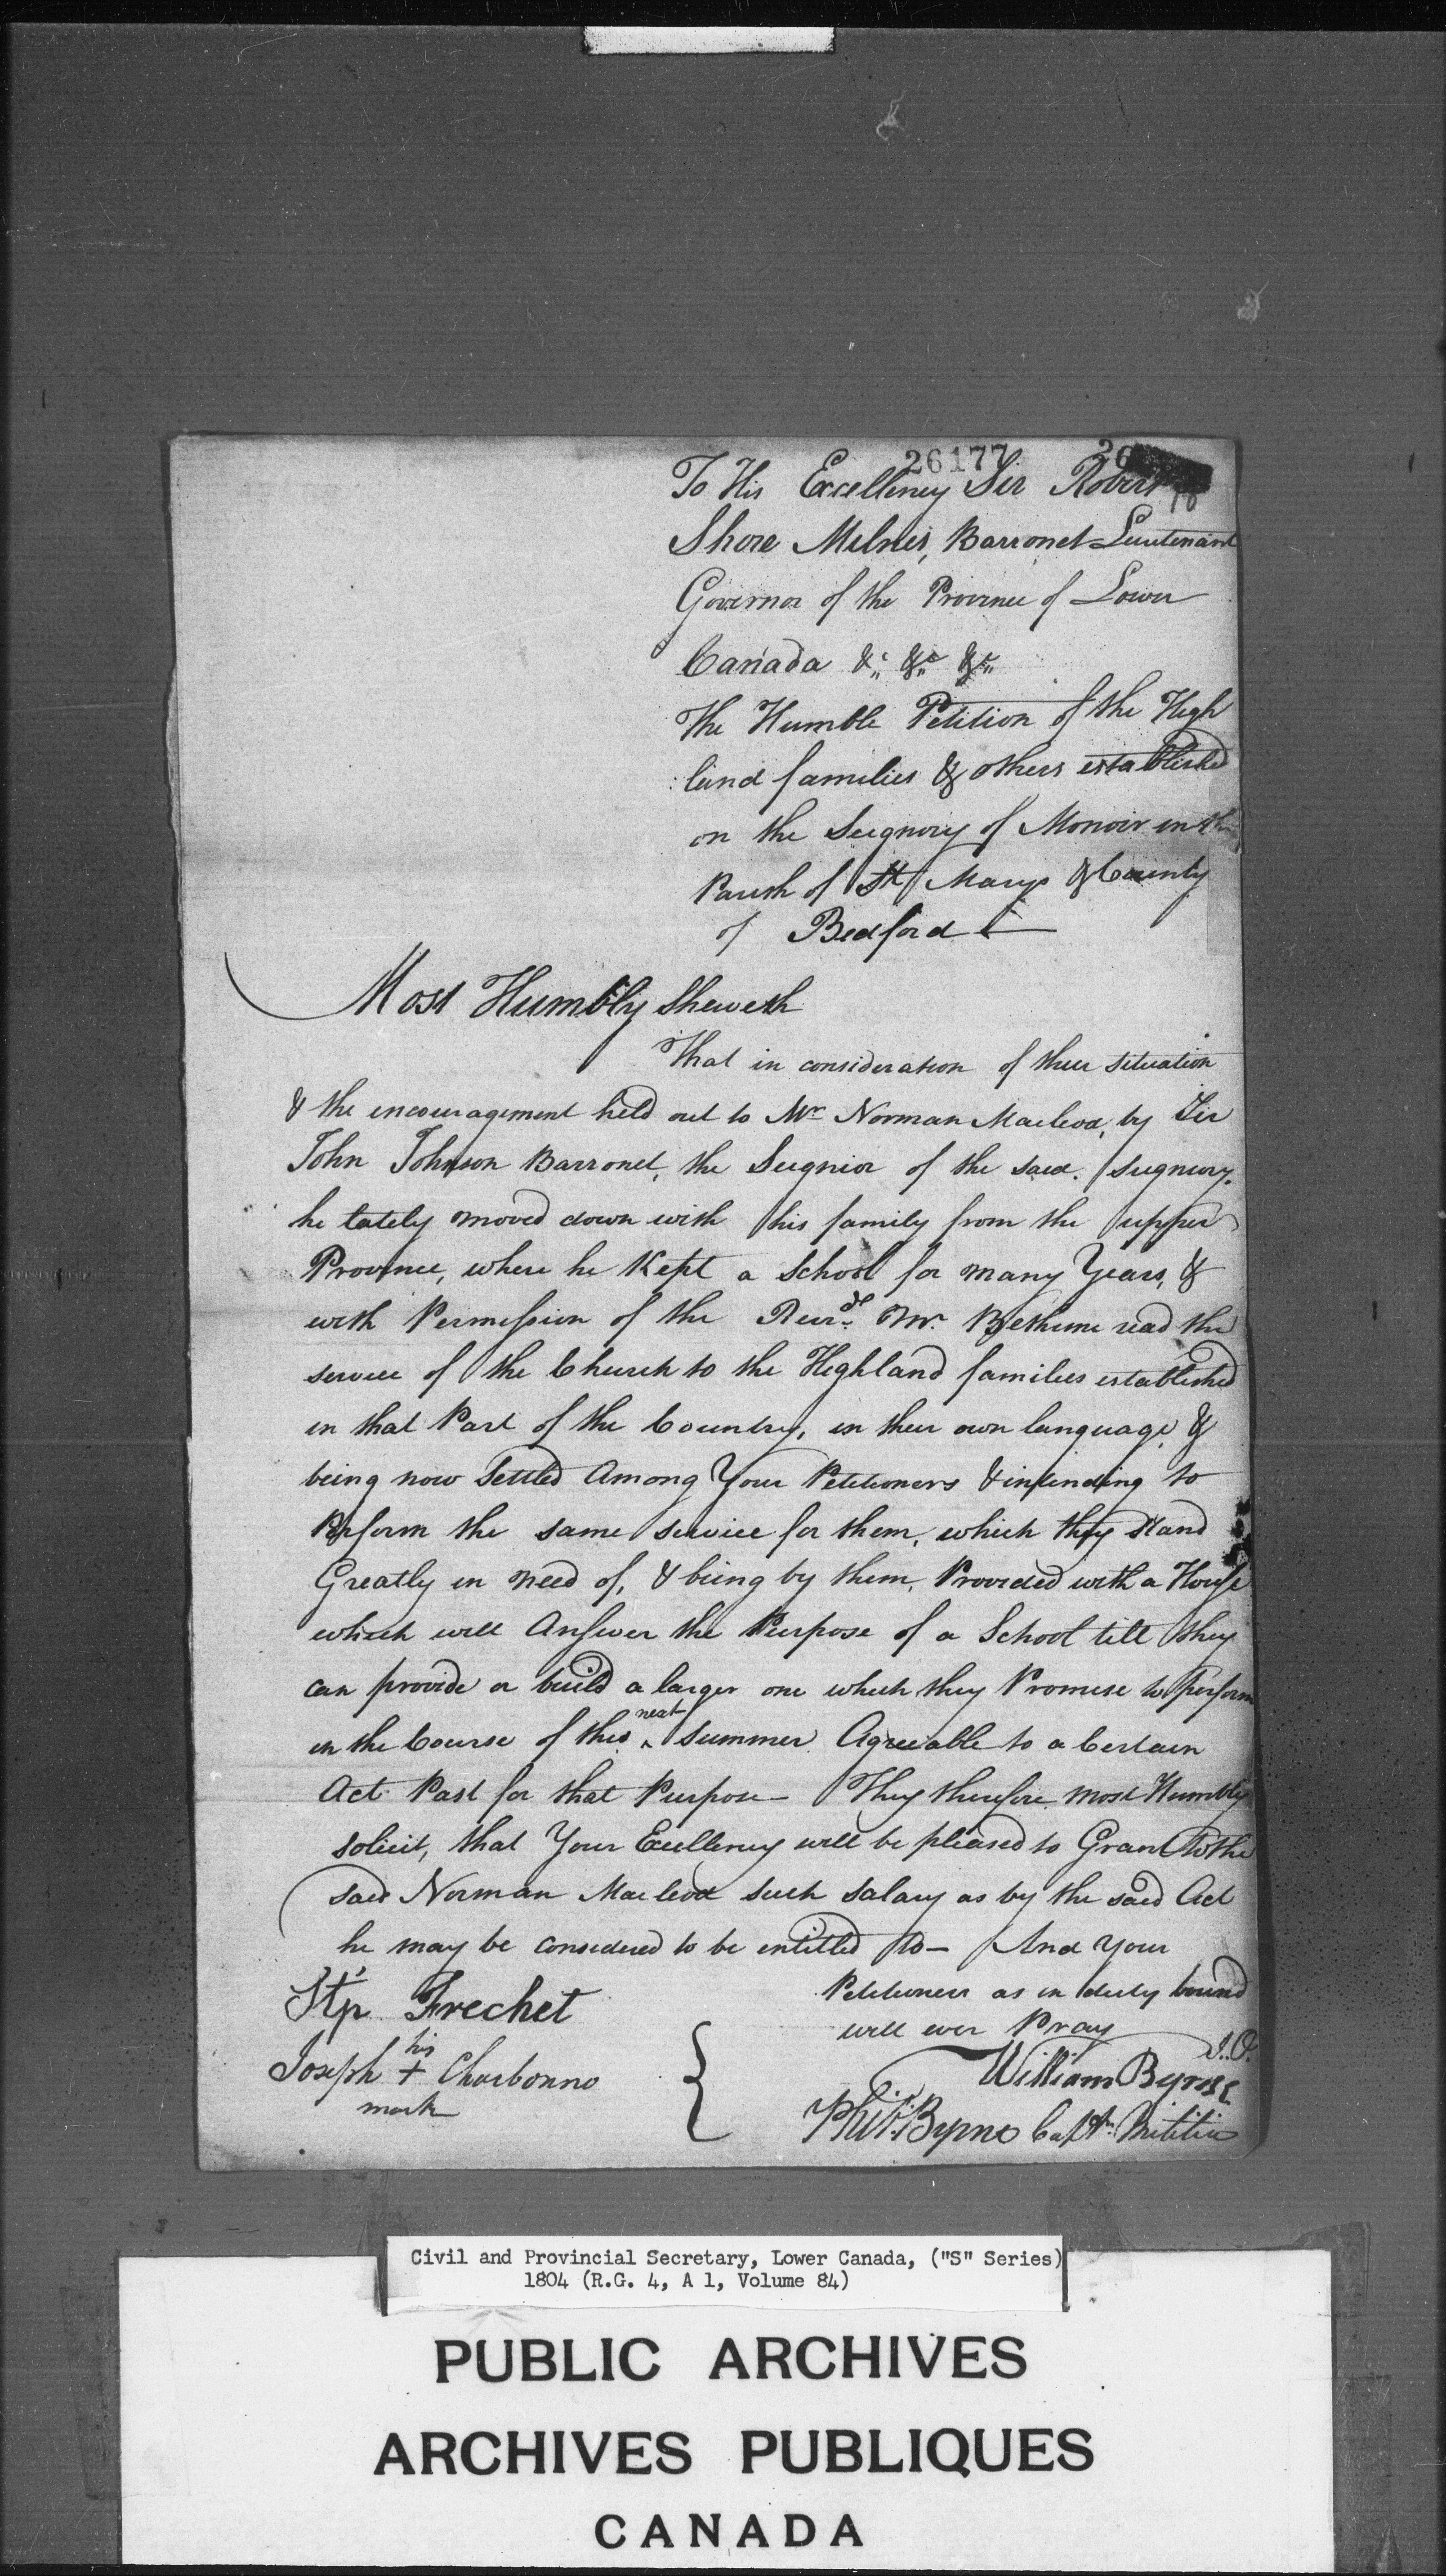 26177
To His Excellency Sir Robert
Shore Milnes, Barronet Lieutenant
Governor of the Province of Lower
Canada &c &c &c
The Humble Petition of the High
land families & others established
on the Seignory of Monoir in the
Parish of St Marys & County
of Bedford
Most Humbly Sheweth
That in consideration of their situation
& the encouragement held out to Mr Norman Macleod, by Sir
John Johnson Barronet, the Seignior of the said Seignory,
he lately moved down with his family from the upper
Province, where he Kept a School for many Years, &
with Permission of the Revrd Mr Bethune read the
service of the Church to the Highland families established
in that Part of the Country, in their own language &
being now Settled Among Your Petitioners & intending to
Perform the same service for them, which they stand
Greatly in need of, & being by them, Provided with a House
which will Answer the Purpose of a School till they
can provide or build a larger one which they Promise to perform
in the Course of this next Summer Agreeable to a Certain
Act Past for that Purpose — They therefore most Humbly
solicit, that Your Excellency will be pleased to Grant to the
said Norman Macleod such salary as by the said Act
he may be considered to be entitled to — And Your
Petitioners as in duty bound
will ever Pray
Stp Frechet
Joseph his + mark Charbonno
William Byrne
Phil. Byrne Captn Militia
Civil and Provincial Secretary, Lower Canada, ("S" Series)
1804 (R.G. 4, A 1, Volume 84)
PUBLIC ARCHIVES
ARCHIVES PUBLIQUES
CANADA